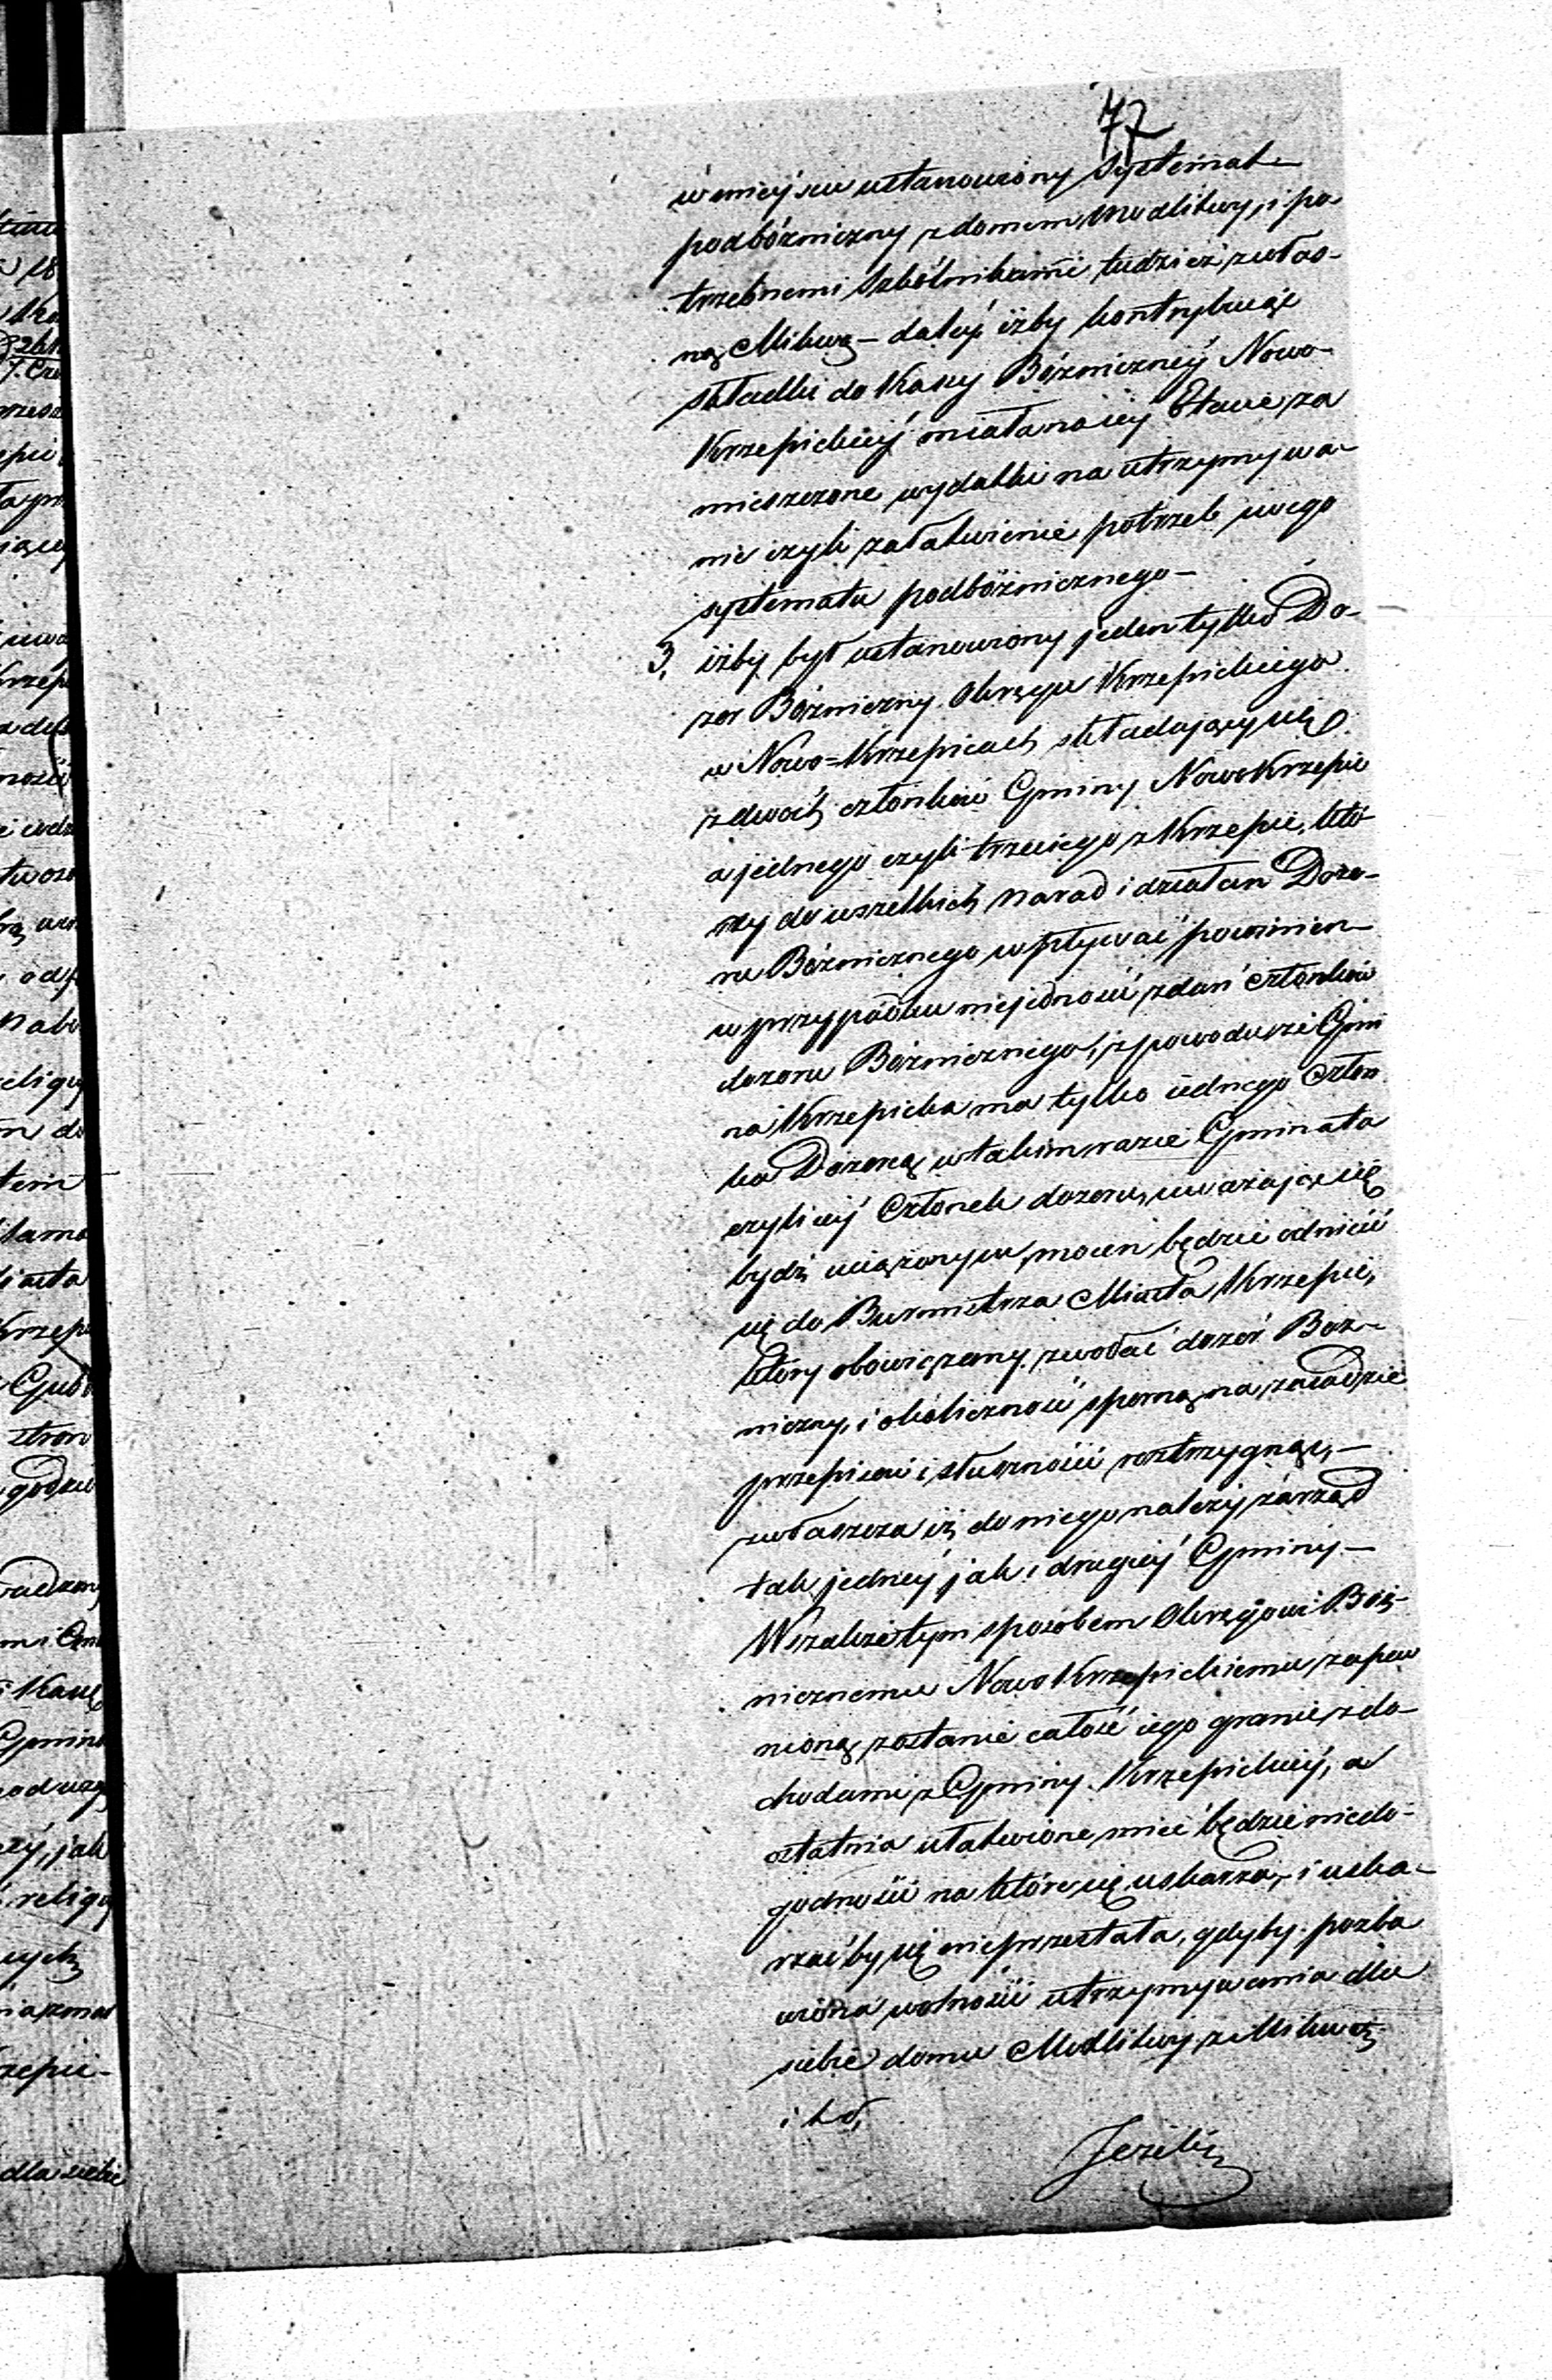 77
w miejscu ustanowiony systemat
podbóżniczny z domem modlitwy, i po
trzebnemi Szkólnikami tudzież włas-
ną Mikwą – daléj iżby kontrybuując
składki do Kassy Bóżnicznéj Nowo-
Krzepickiéj miała na iéj Etacie za
mieszczone wydatki na utrzymywa-
nie czyli załatwienie potrzeb swego
systematu podbóżnicznego –
3. iżby był ustanowiony jeden tylko Do-
zor Bóżniczny Okręgu Krzepickiego
w Nowo=Krzepicach składający się
z dwóch członków Gminy Nowokrzepic
a jednego czyli trzeciego z Krzepic, któ-
ry do wszelkich narad i działań Dozo-
ru Bóżnicznego wpływać powinien –
w przypadku niejedności zdań członków
dozoru Bóżnicznego, z powodu że Gmi
na Krzepicka ma tylko iednego Człon
ka Dozoru, w takim razie Gmina ta
czyli iéj Członek dozoru, uważając się
bydź uciążonym, mocen będzie odnieść
się do Burmistrza Miasta Krzepic,
który obowiązany zwołać dozór Boż-
niczny, i okoliczność sporną na zasadzie
przepisów i słuszności roztrzygnąć, –
zwłaszcza iż do niego należy zarząd
tak jednéj jak i drugiéj Gminy –
Wszakże tym sposobem Okręgowi Boż-
nicznemu Nowo Krzepickiemu zapew
nioną zostanie całość iego granic z do-
chodami z Gminy Krzepickiéj, a
ostatnia ułatwione mieć będzie niedo-
godności na które się uskarza, i uska-
rzać by się nieprzestała, gdyby pozba
wiona wolności utrzymywania dla
siebie domu Modlitwy z Mikwą
i t d,